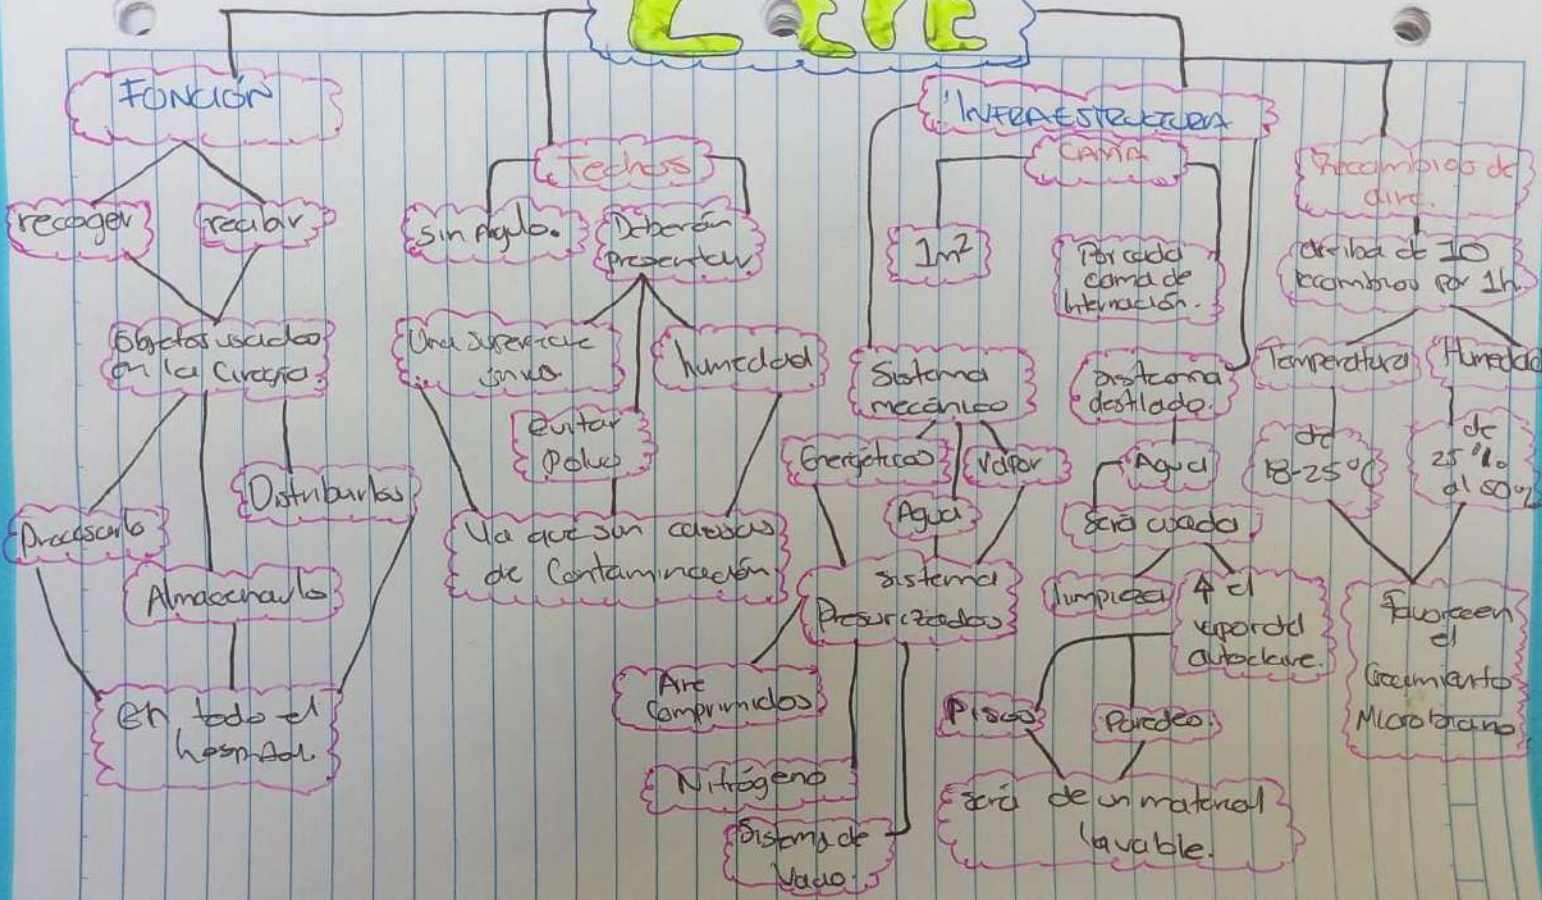 CEYE
FUNCIÓN
recoger
recibir
Objetos usados
en la Cirugía.
Procesarlo
Distribuirlos
Almacenarlo
En todo el
hospital.
Techos
Sin Águlo.
Deberán
presentar
Una superficie
humedad
evitar
Polvo
Ya que son causas
de Contaminación.
INFRAESTRUCTURA
CAMA
1m²
Por cada
cama de
Internación.
Sistema
mecánico
Energéticos
Vapor
Agua
Sistema
Presurizados
Aire
Comprimidos
Nitrógeno
Sistema de
Vacio.
Sistema
destilado.
Agua
Será usada
limpieza
el
vapor del
autoclave.
Pisos
Paredes.
Será de un material
lavable.
Recambios de
aire.
arriba de 10
recambios por 1h.
Temperatura
Humedad
de
18-25°C
de
25%
al 50%
Favorecen
el
Crecimiento
Microbiano